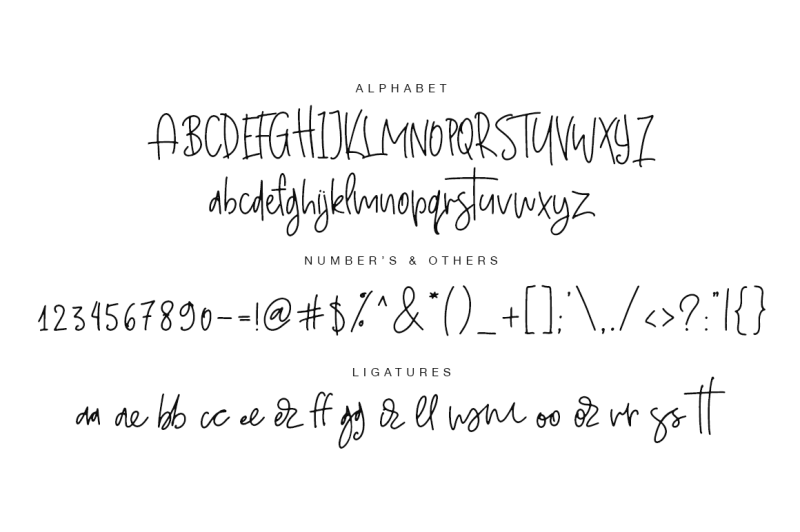 ALPHABET
ABCDEFGHIJKLMNOPQRSTUVWXYZ
abcdefghijklmnopqrstuvwxyz
NUMBER'S & OTHERS
1234567890-=!@#$%^&*()_+[];'\,./<>?:"|{}
LIGATURES
aa ae bb cc ee er ff gg ir ll oo or rr ss tt